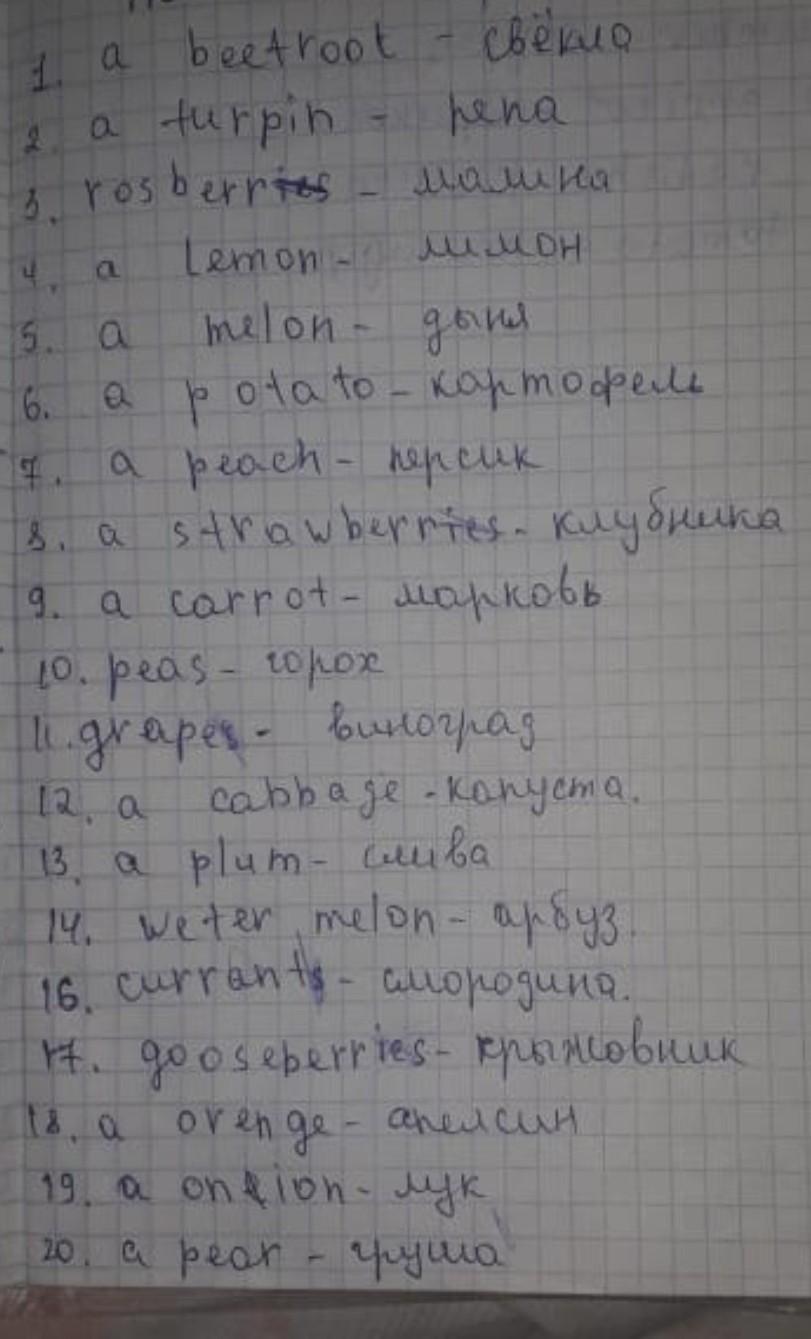 1. a beetroot - свёкла
2. a turpin - репа
3. rosberries - малина
4. a lemon - лимон
5. a melon - дыня
6. a potato - картофель
7. a peach - персик
8. a strawberries - клубника
9. a carrot - марковь
10. peas - горох
11. grapes - виноград
12. a cabbage - капуста.
13. a plum - слива
14. weter melon - арбуз.
16. currants - смородина.
17. gooseberries - крыжовник
18. a orenge - апелсин
19. a onion - лук
20. a pear - груша